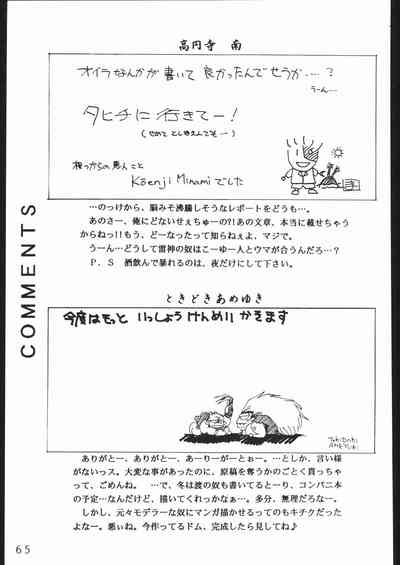 高円寺 南
オイラなんかが書いて良かったんでせうか…?
うーん…
タヒチに行きてー!
根っからの悪人こと
Kōenji Minamiでした
…のっけから、脳みそ沸騰しそうなレポートをどうも…。
あのさー、俺にどないせぇちゅーの?!あの文章、本当に載せちゃう
からねっ!!もう、どーなったって知らねぇよ、マジで。
うーん…どうして雷神の奴はこーゆー人とウマが合うんだろ…?
P.S 酒飲んで暴れるのは、夜だけにして下さい。
COMMENTS
ときどきあめゆき
今度はもっと いっしょうけんめい かきます
ありがとー、ありがとー、あーりーがーとぉー。…としか、言い様
がないっス。大変な事があったのに、原稿を奪うかのごとく貰っちゃ
って、ごめんね。 …で、冬は渡の奴も書いてるとーり、コンパニ本
の予定…なんだけど、描いてくれっかなぁ…。多分、無理だろなー。
しかし、元々モデラーな奴にマンガ描かせるってのもキチクだった
よなー。悪ぃね。今作ってるドム、完成したら見してね♪
65